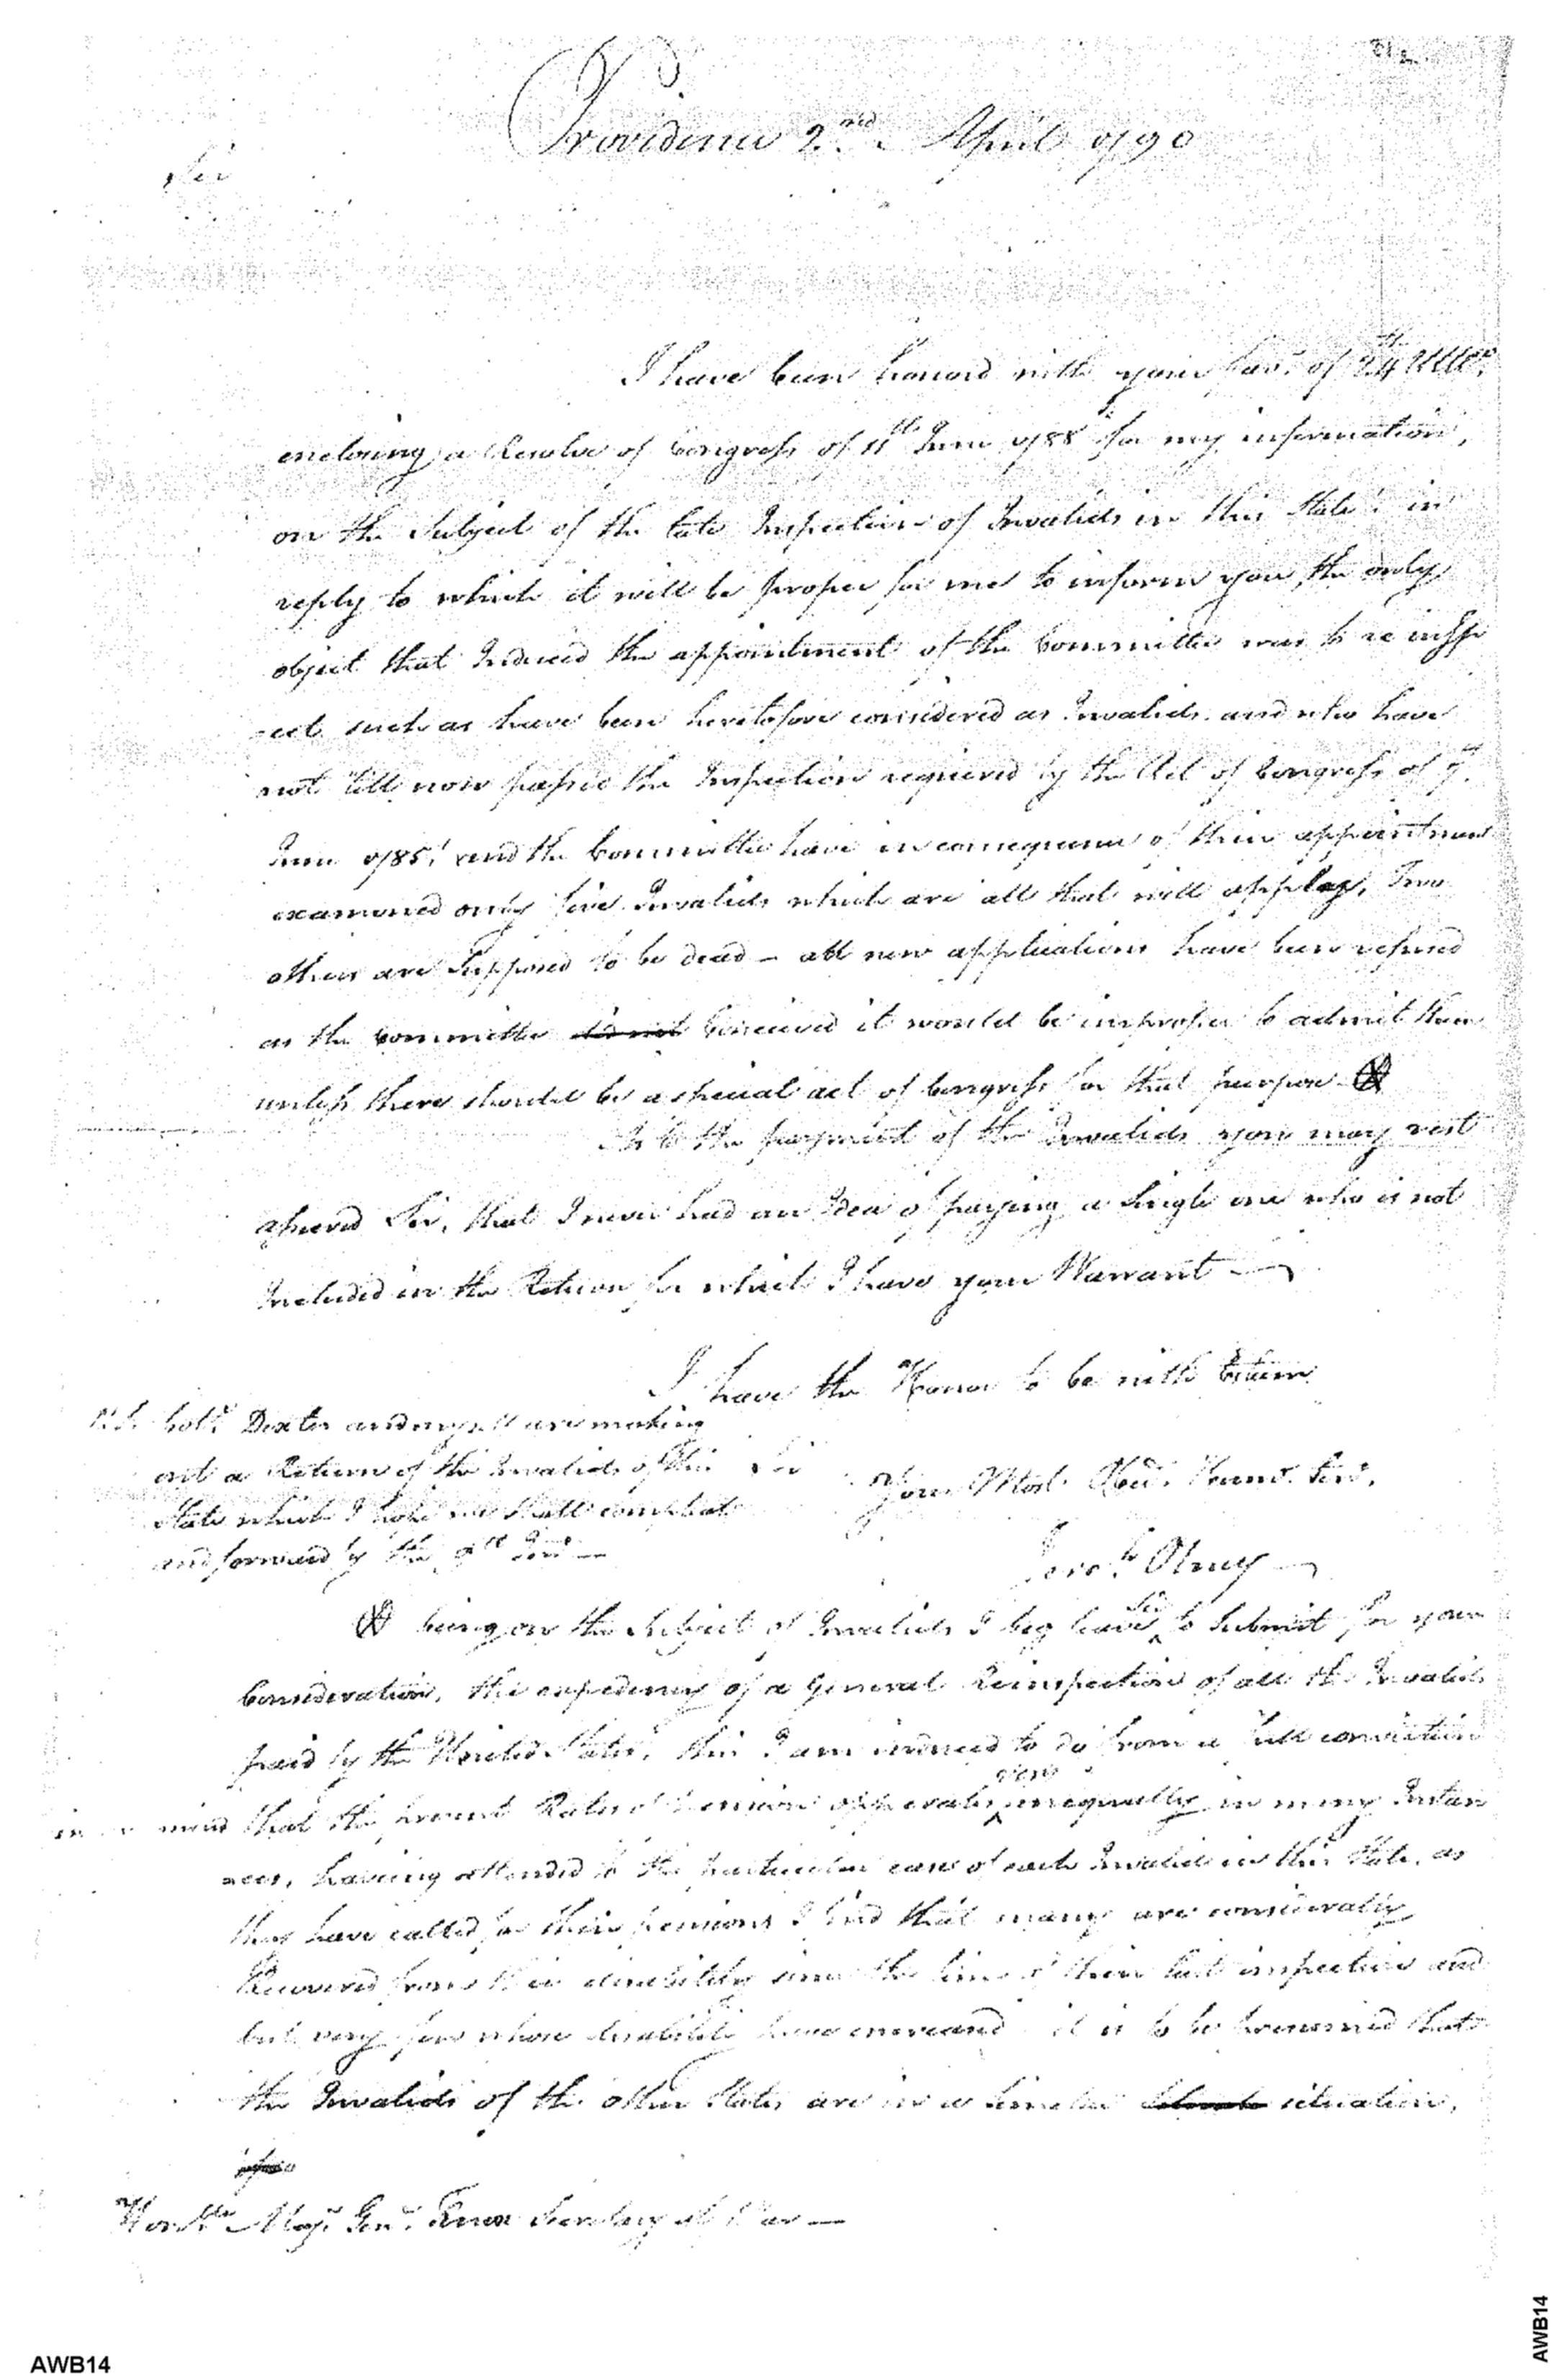 Providence 2nd. April 1790
Sir
I have been honord with your favr. of 24th Ulto.
enclosing a Resolve of Congress of 11th June 1788 for my information,
on the Subject of the late Inspection of Invalids in this State: in
reply to which it will be proper for me to inform you, the only
object that Induced the appointment of the Committee was to re inspe
-ect such as have been heretofore considered as Invalids and who have
not till now passed the Inspection required by the Act of Congress of ye.
June 1785, and the Committee have in consequence of their appointment
examined only five Invalids which are all that will apply, Two
others are Supposed to be dead - all new applications have been refused
as the Committee conceived it would be improper to admit them
unless there should be a special act of Congress for that purpose
As to the payment of the Invalids you may rest
assured Sir, that I never had an Idea of paying a single one who is not
Included in the Return for which I have your Warrant
I have the Honor to be with Esteem
N.B. Colo. Dexter and myself are making
out a Return of the Invalids of this
State which I hope we shall compleat
and forward by the
Sir
Your Most Obed. Humb. Serv.
Jereh. Olney
being on the Subject of Invalids I beg leave Sir to Submit for your
Consideration, the expediency of a General Reinspection of all the Invalids
paid by the United States, this I am induced to do from a full conviction
in my mind that the present Rates of Pensions opperate very unequally in many Instan
nces, having attended to the particular case of each Invalid in this State, as
they have called for their pensions I find that many are considerably
Recovered from their disability since the time of their last inspection and
but very few whose disability have increased it is to be presumed that
the Invalids of the other States are in a similar situation,
Honble. Majr. Genl. Knox Secretary at War
AWB14
AWB14